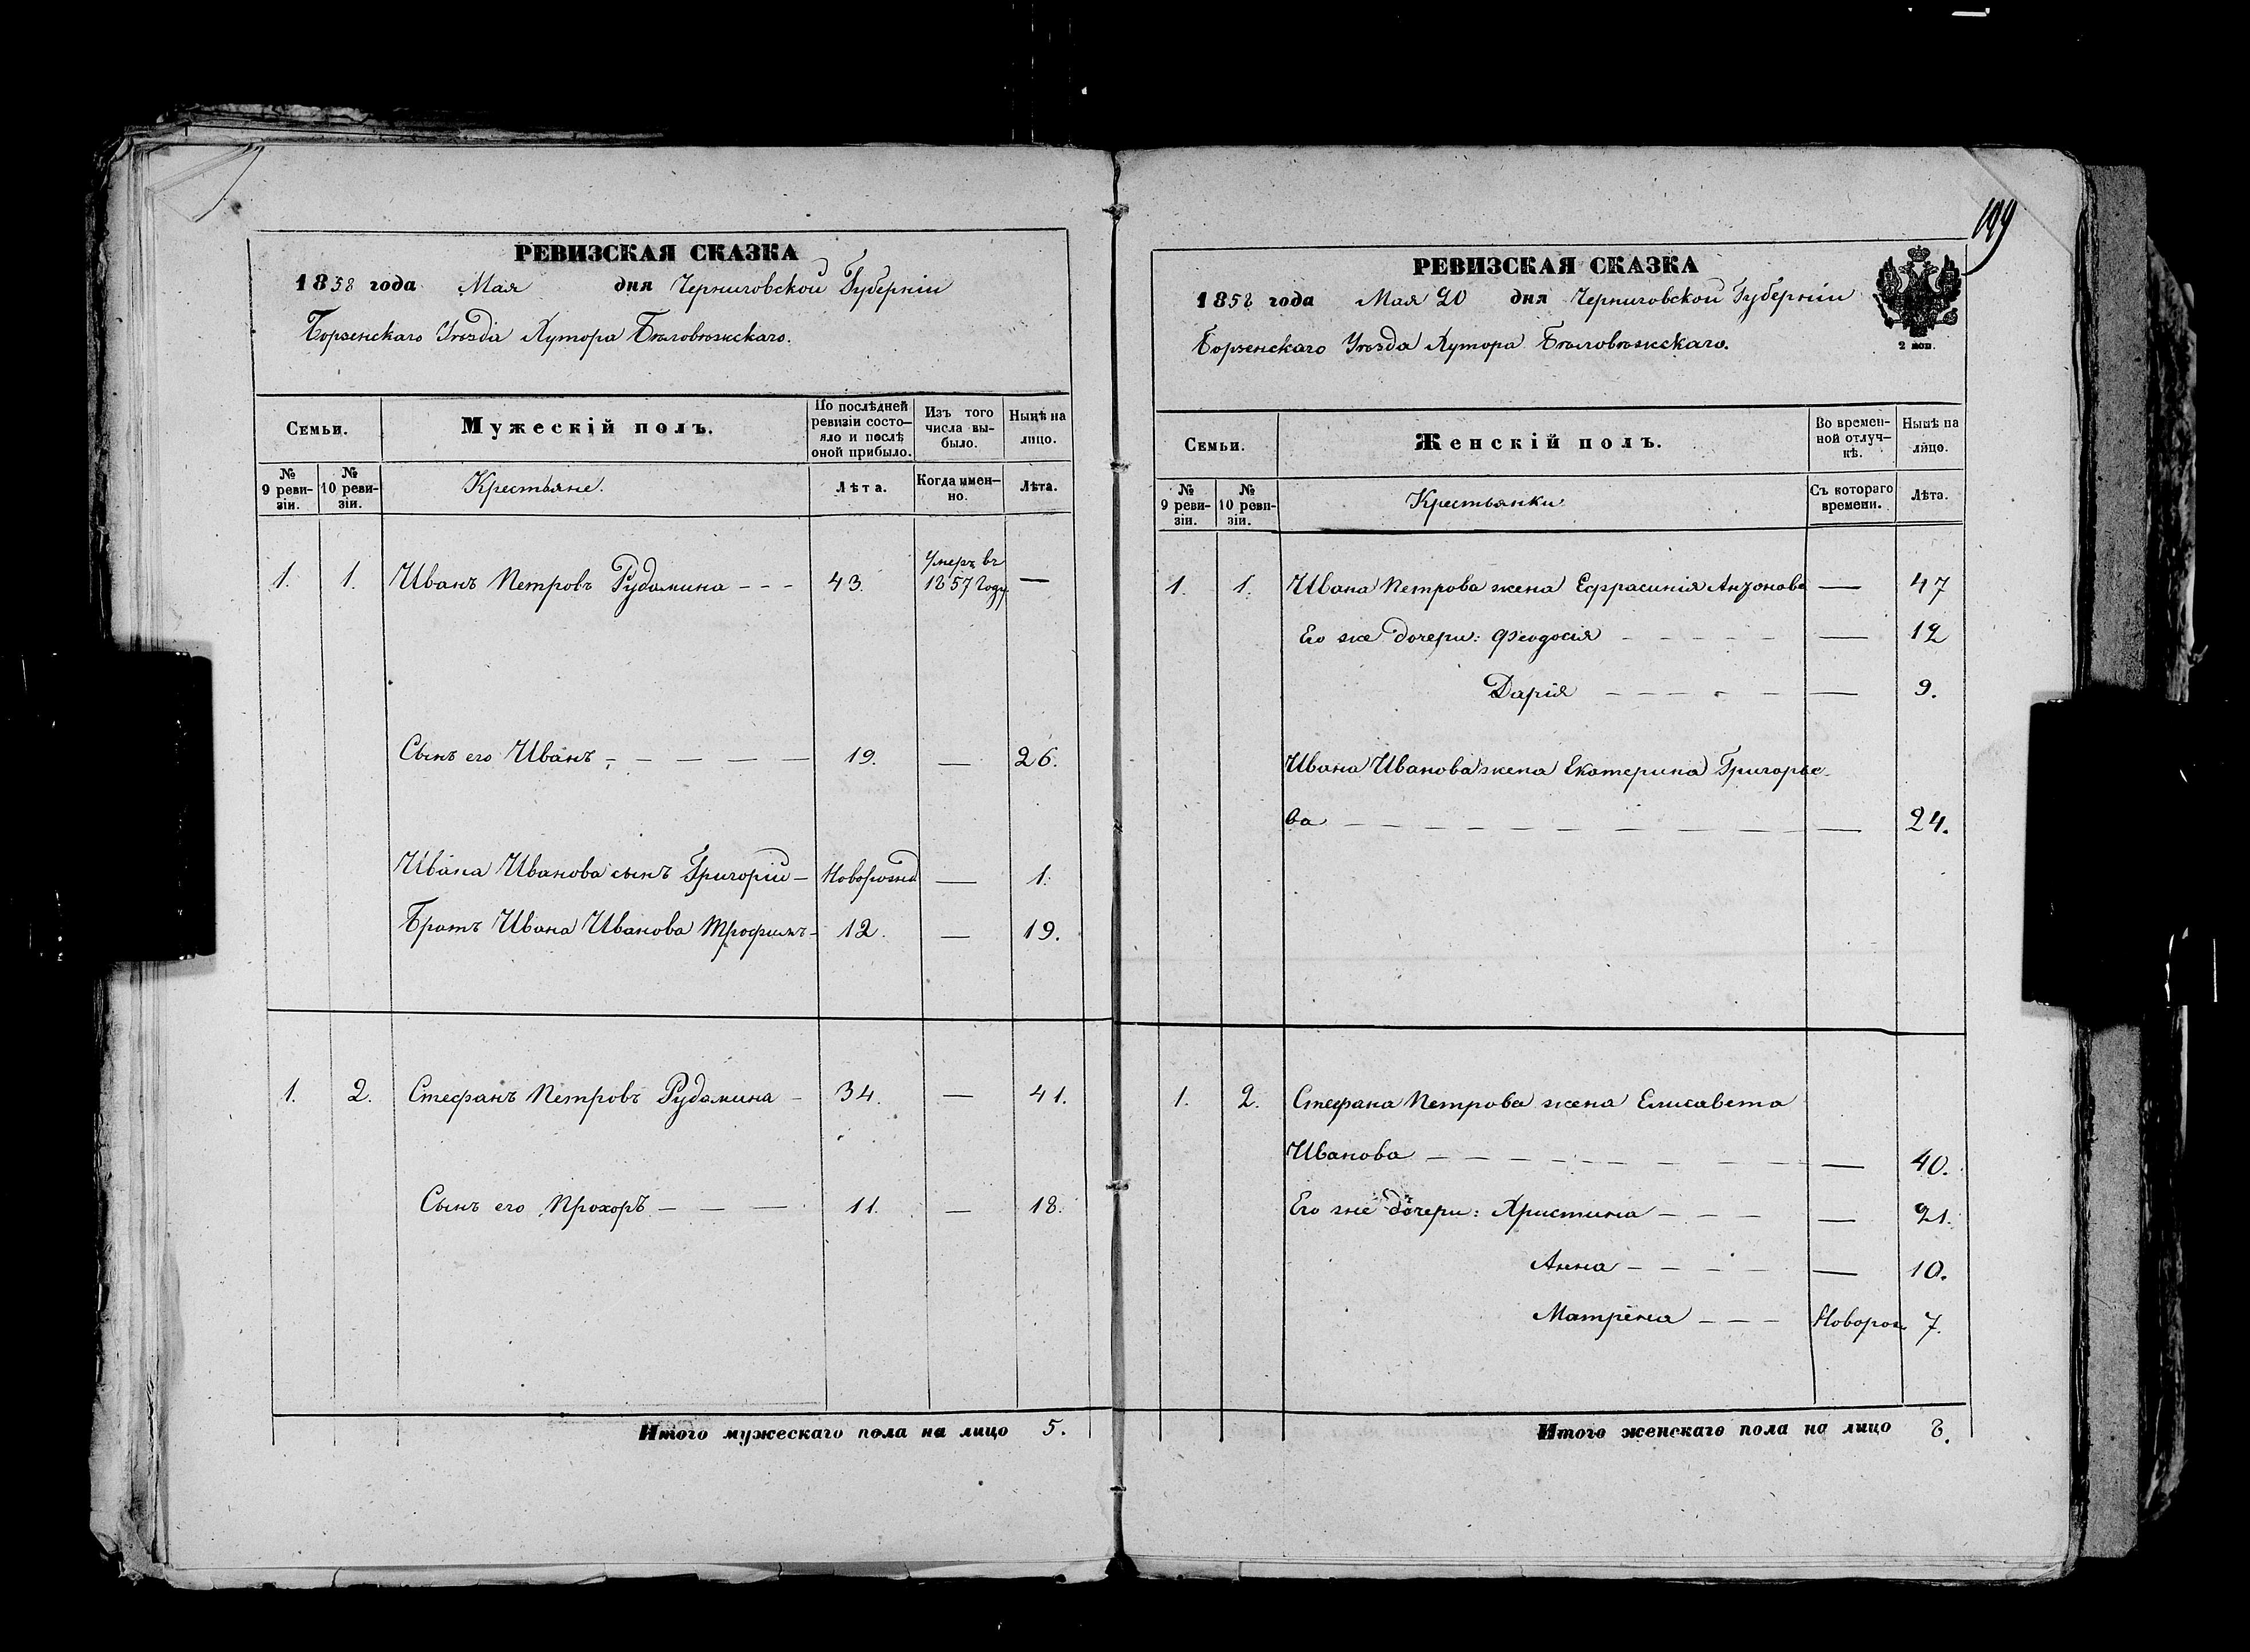 РЕВИЗСКАЯ СКАЗКА
1858 года Мая дня Черниговской Губерніи
Борзенскаго Уѣзда Хутора Бѣловѣжскаго.
Семьи.
Мужескій полъ.
По послѣдней ревизіи состояло и послѣ оной прибыло.
Изъ того числа выбыло.
Нынѣ на лицо.
№ 9 ревизіи.
№ 10 ревизіи.
Крестьяне.
Лѣта.
Когда именно.
Лѣта.
1. 1. Иванъ Петровъ Рудамина - - - 43. Умеръ въ 1857 году —
Сынъ его Иванъ - — — — — 19. — 26.
Ивана Иванова сынъ Григорій — Новорожд — 1.
Братъ Ивана Иванова Трофимъ - 12. — 19.
1. 2. Стефанъ Петровъ Рудамина - 34. — 41.
Сынъ его Прохоръ — — — 11. — 18.
Итого мужескаго пола на лицо 5.
119
РЕВИЗСКАЯ СКАЗКА
1858 года Мая 20 дня Черниговской Губерніи
Борзенскаго Уѣзда Хутора Бѣловѣжскаго.
2 коп.
Семьи.
Женскій полъ.
Во временной отлучкѣ.
Нынѣ на лицо.
№ 9 ревизіи.
№ 10 ревизіи.
Крестьянки
Съ котораго времени.
Лѣта.
1. 1. Ивана Петрова жена Ефрасинія Антонова — 47
Его же дочери: Феодосія - - - - - — 12
Дарія - - - - - — 9.
Ивана Иванова жена Екатерина Григорье-
ва — — — — — — — — — 24.
1. 2. Стефана Петрова жена Елисавета
Иванова — — — — — — — — — 40.
Его же дочери: Христина — - — — — 21.
Анна — - — - — 10.
Матрена — — — Новорож 7.
Итого женскаго пола на лицо 8.